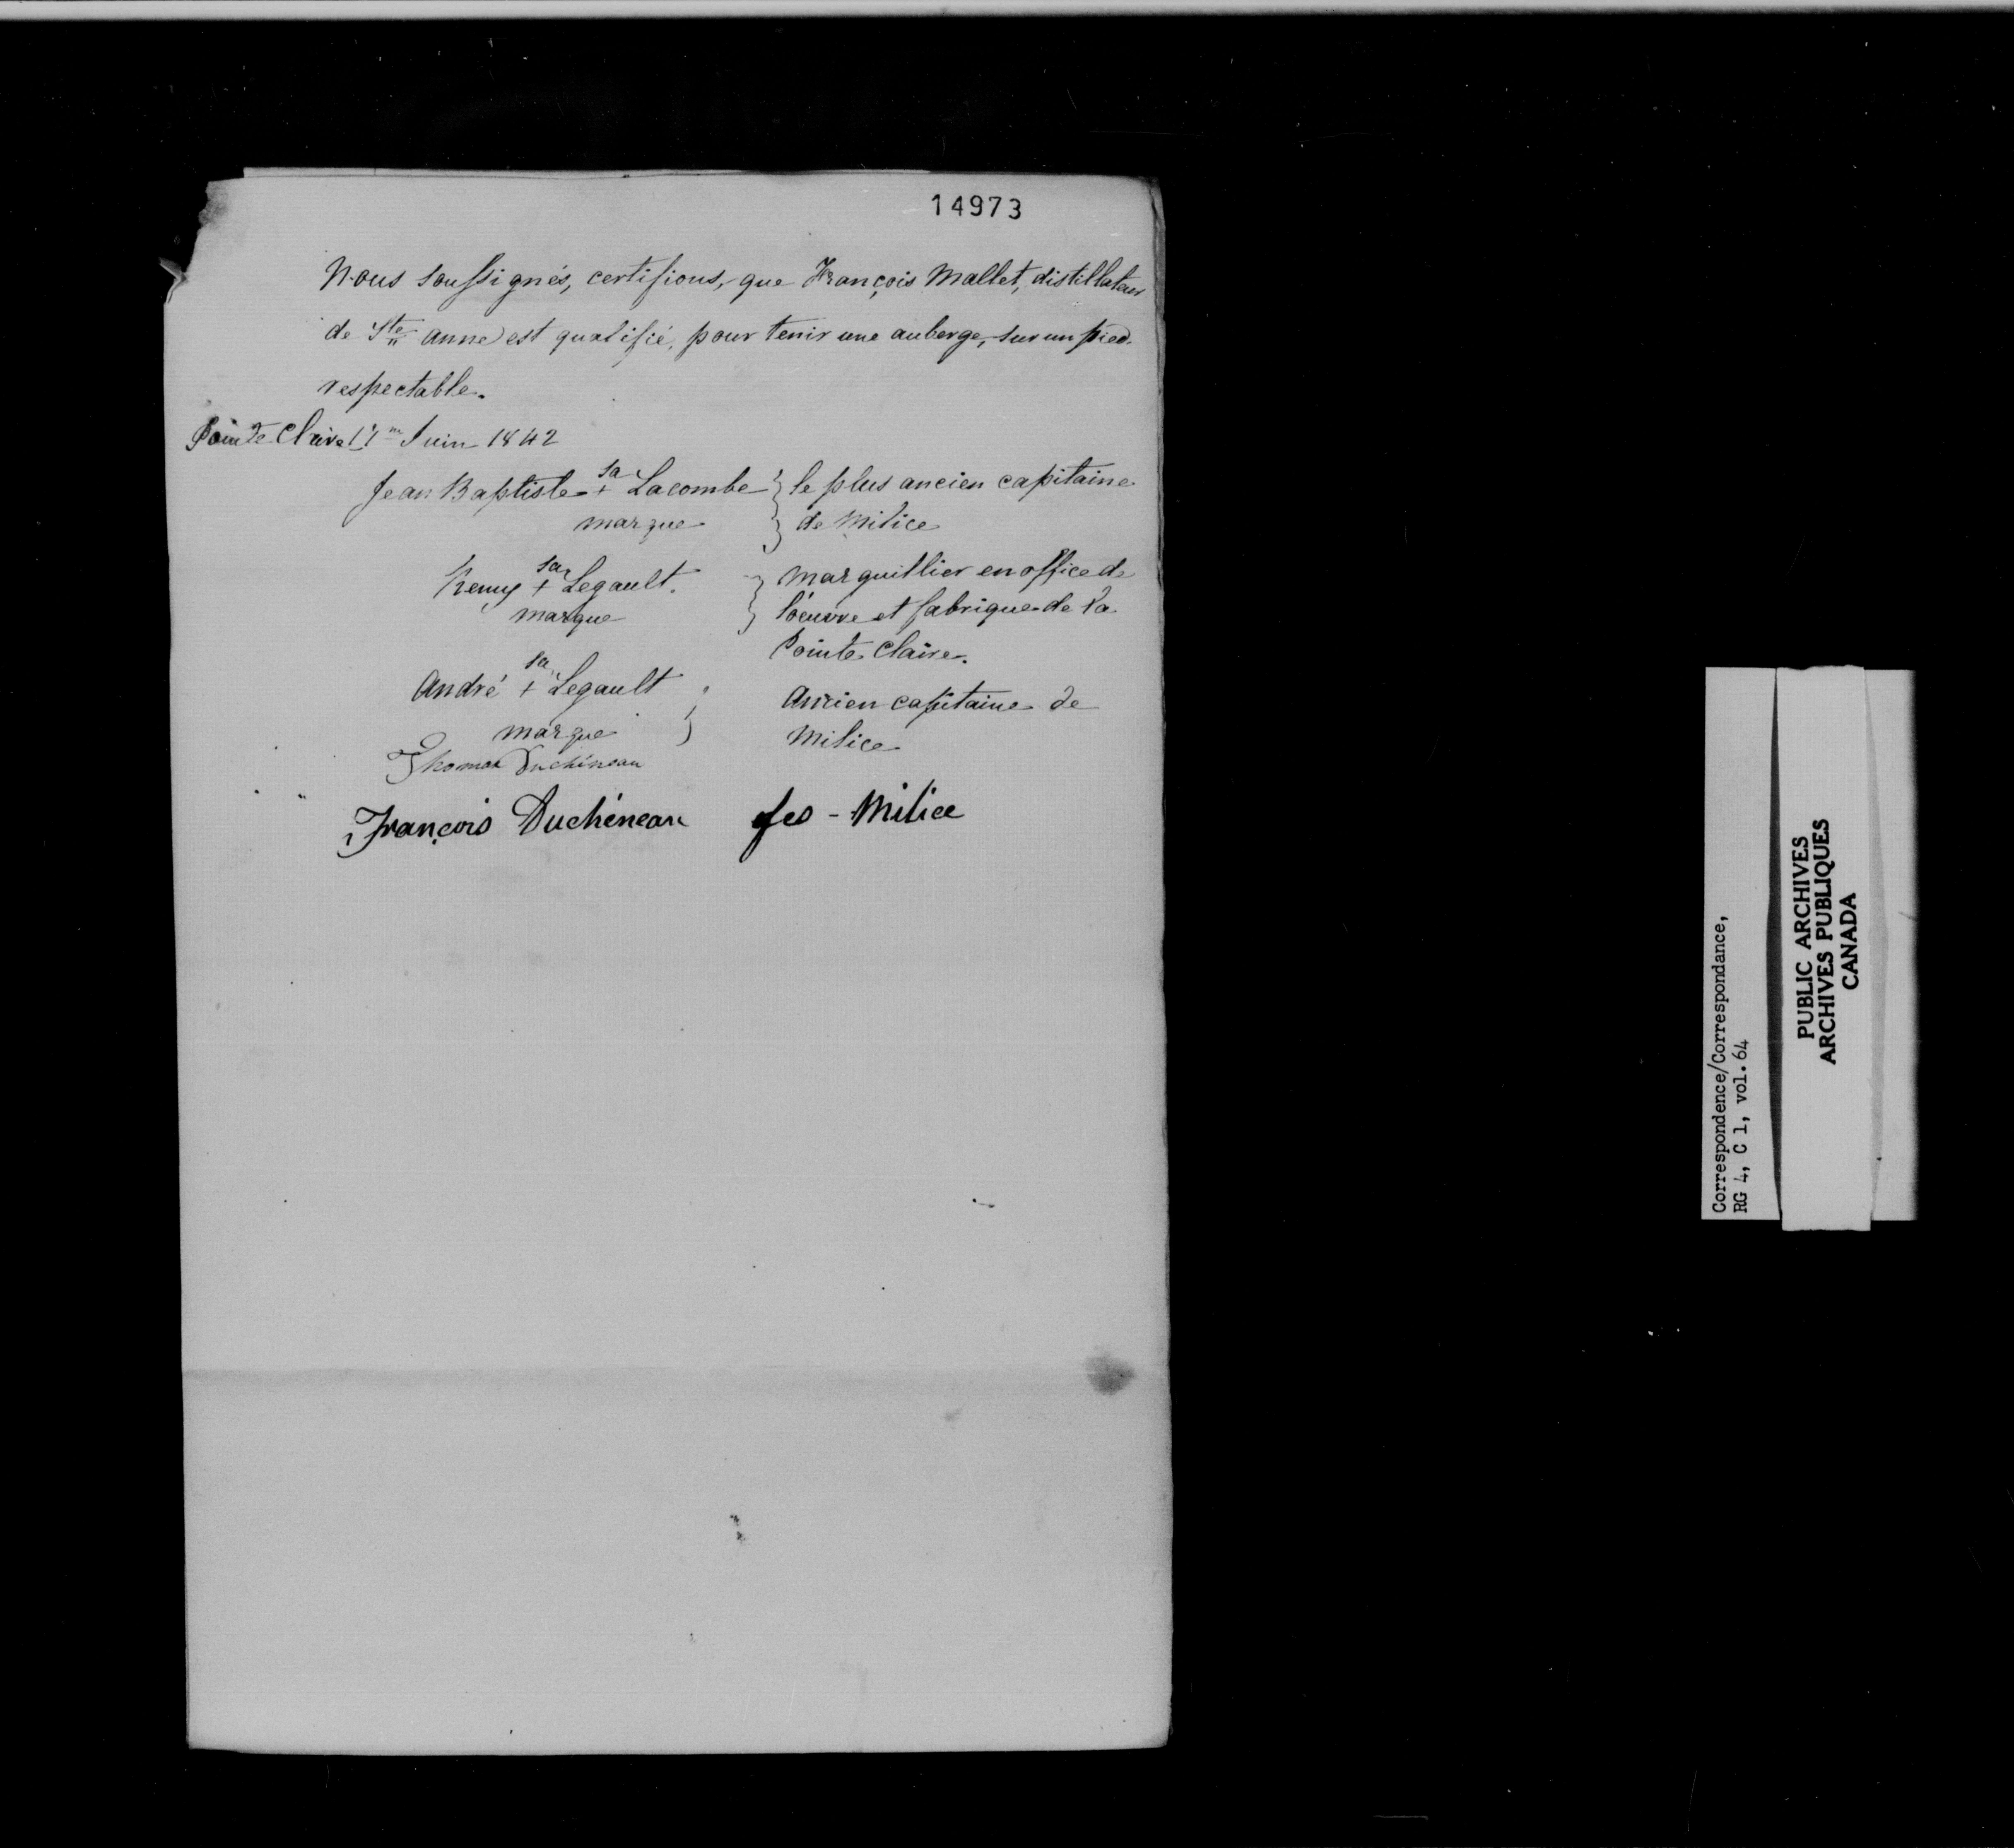 14973
Nous soussignés, certifions, que François Mallet, distillateur
de Ste anne est qualifié, pour tenir une auberge, sur un pied
respectable.
Pointe Claire Juin 1842
Jean Baptiste sa + Lacombe } le plus ancien capitaine
marque } de Milice
Remy sa + Legault. } Marguillier en office de
marque } l'oeuvre et fabrique de la
Pointe Claire.
André sa + Legault } Ancien capitaine de
marque } Milice
Thomas Duchéneau
François Duchéneau - Milice
Correspondence/Correspondance,
RG 4, C 1, vol. 64
PUBLIC ARCHIVES
ARCHIVES PUBLIQUES
CANADA